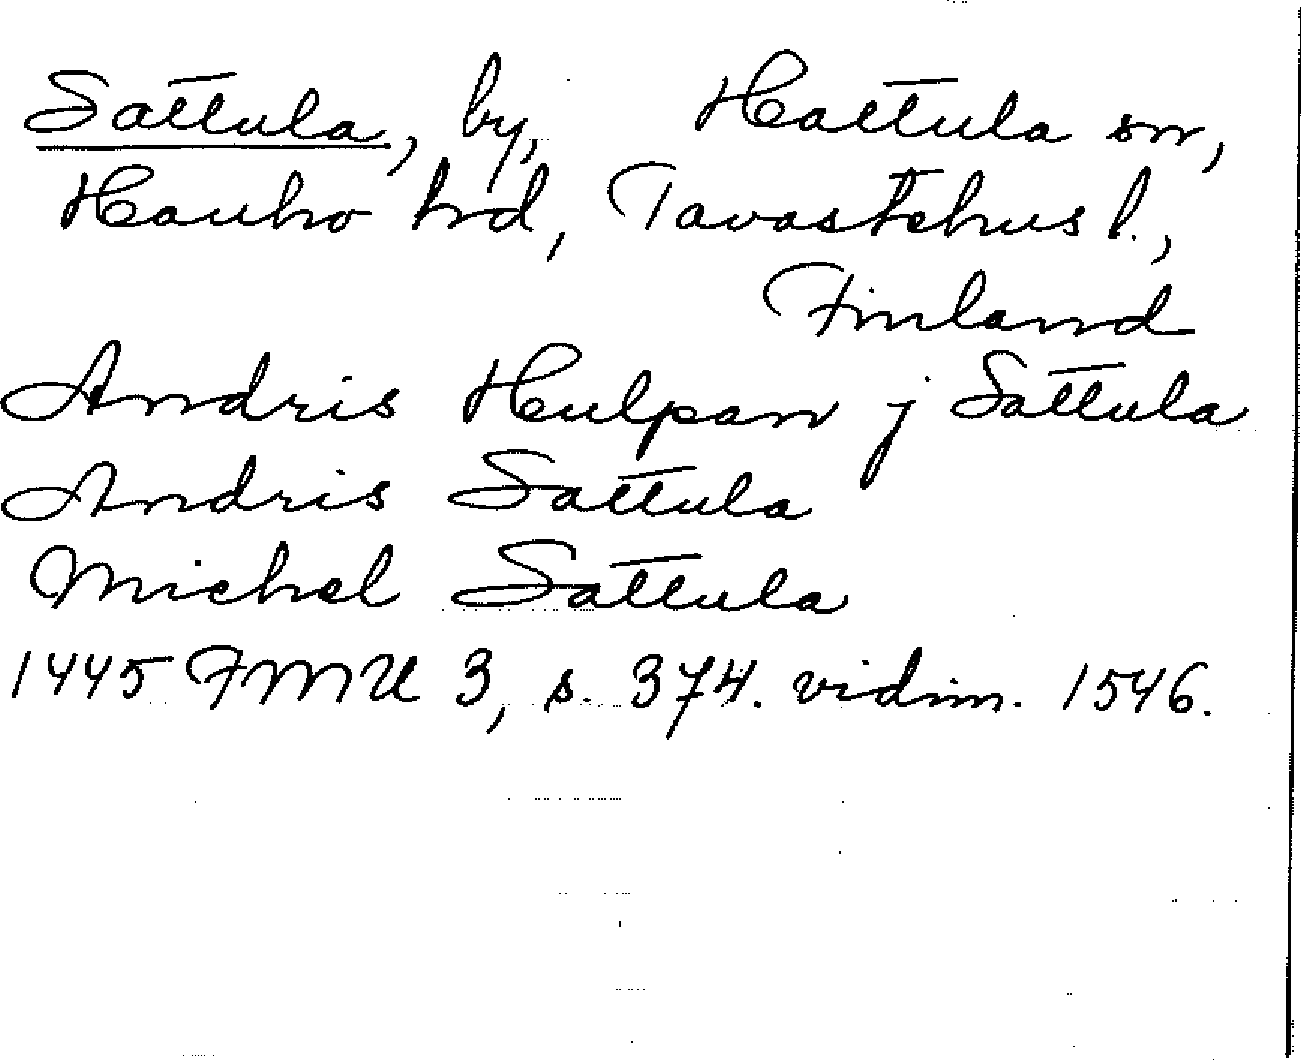 Sattula, by, Hattula sn,
Hauho hd, Tavastehus l.,
Finland
Andris Hulpan j Sattula
Andris Sattula
Michel Sattula
1445 FMU 3, s. 374. vidim. 1546.